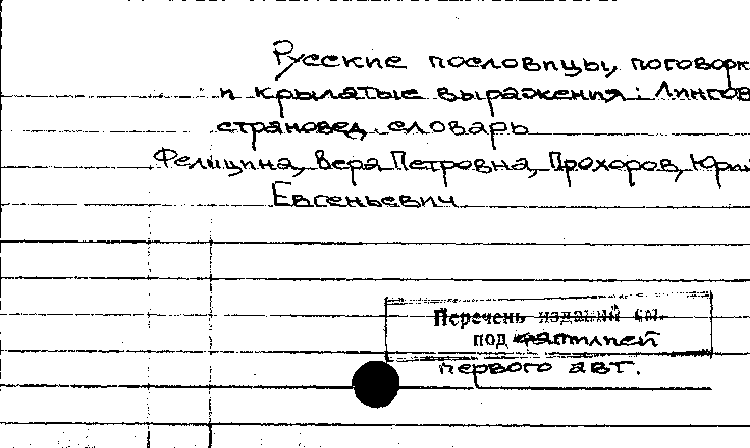 Русские пословицы, поговорк
и крылатые выражения: Лингов
страновед. словарь
Фелицина, Вера Петровна, Прохоров, Юрий
Евгеньевич
Перечень изданий см.
под фамилией
первого авт.